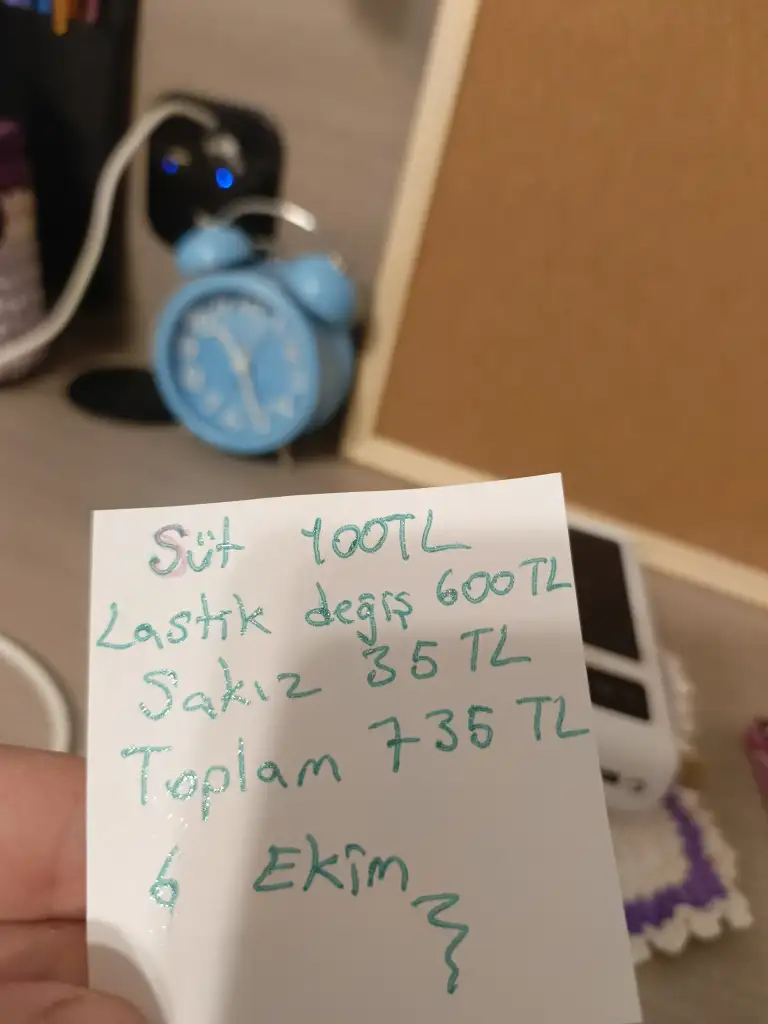 Süt 100TL
Lastik değiş 600TL
Sakız 35 TL
Toplam 735 TL
6 Ekim